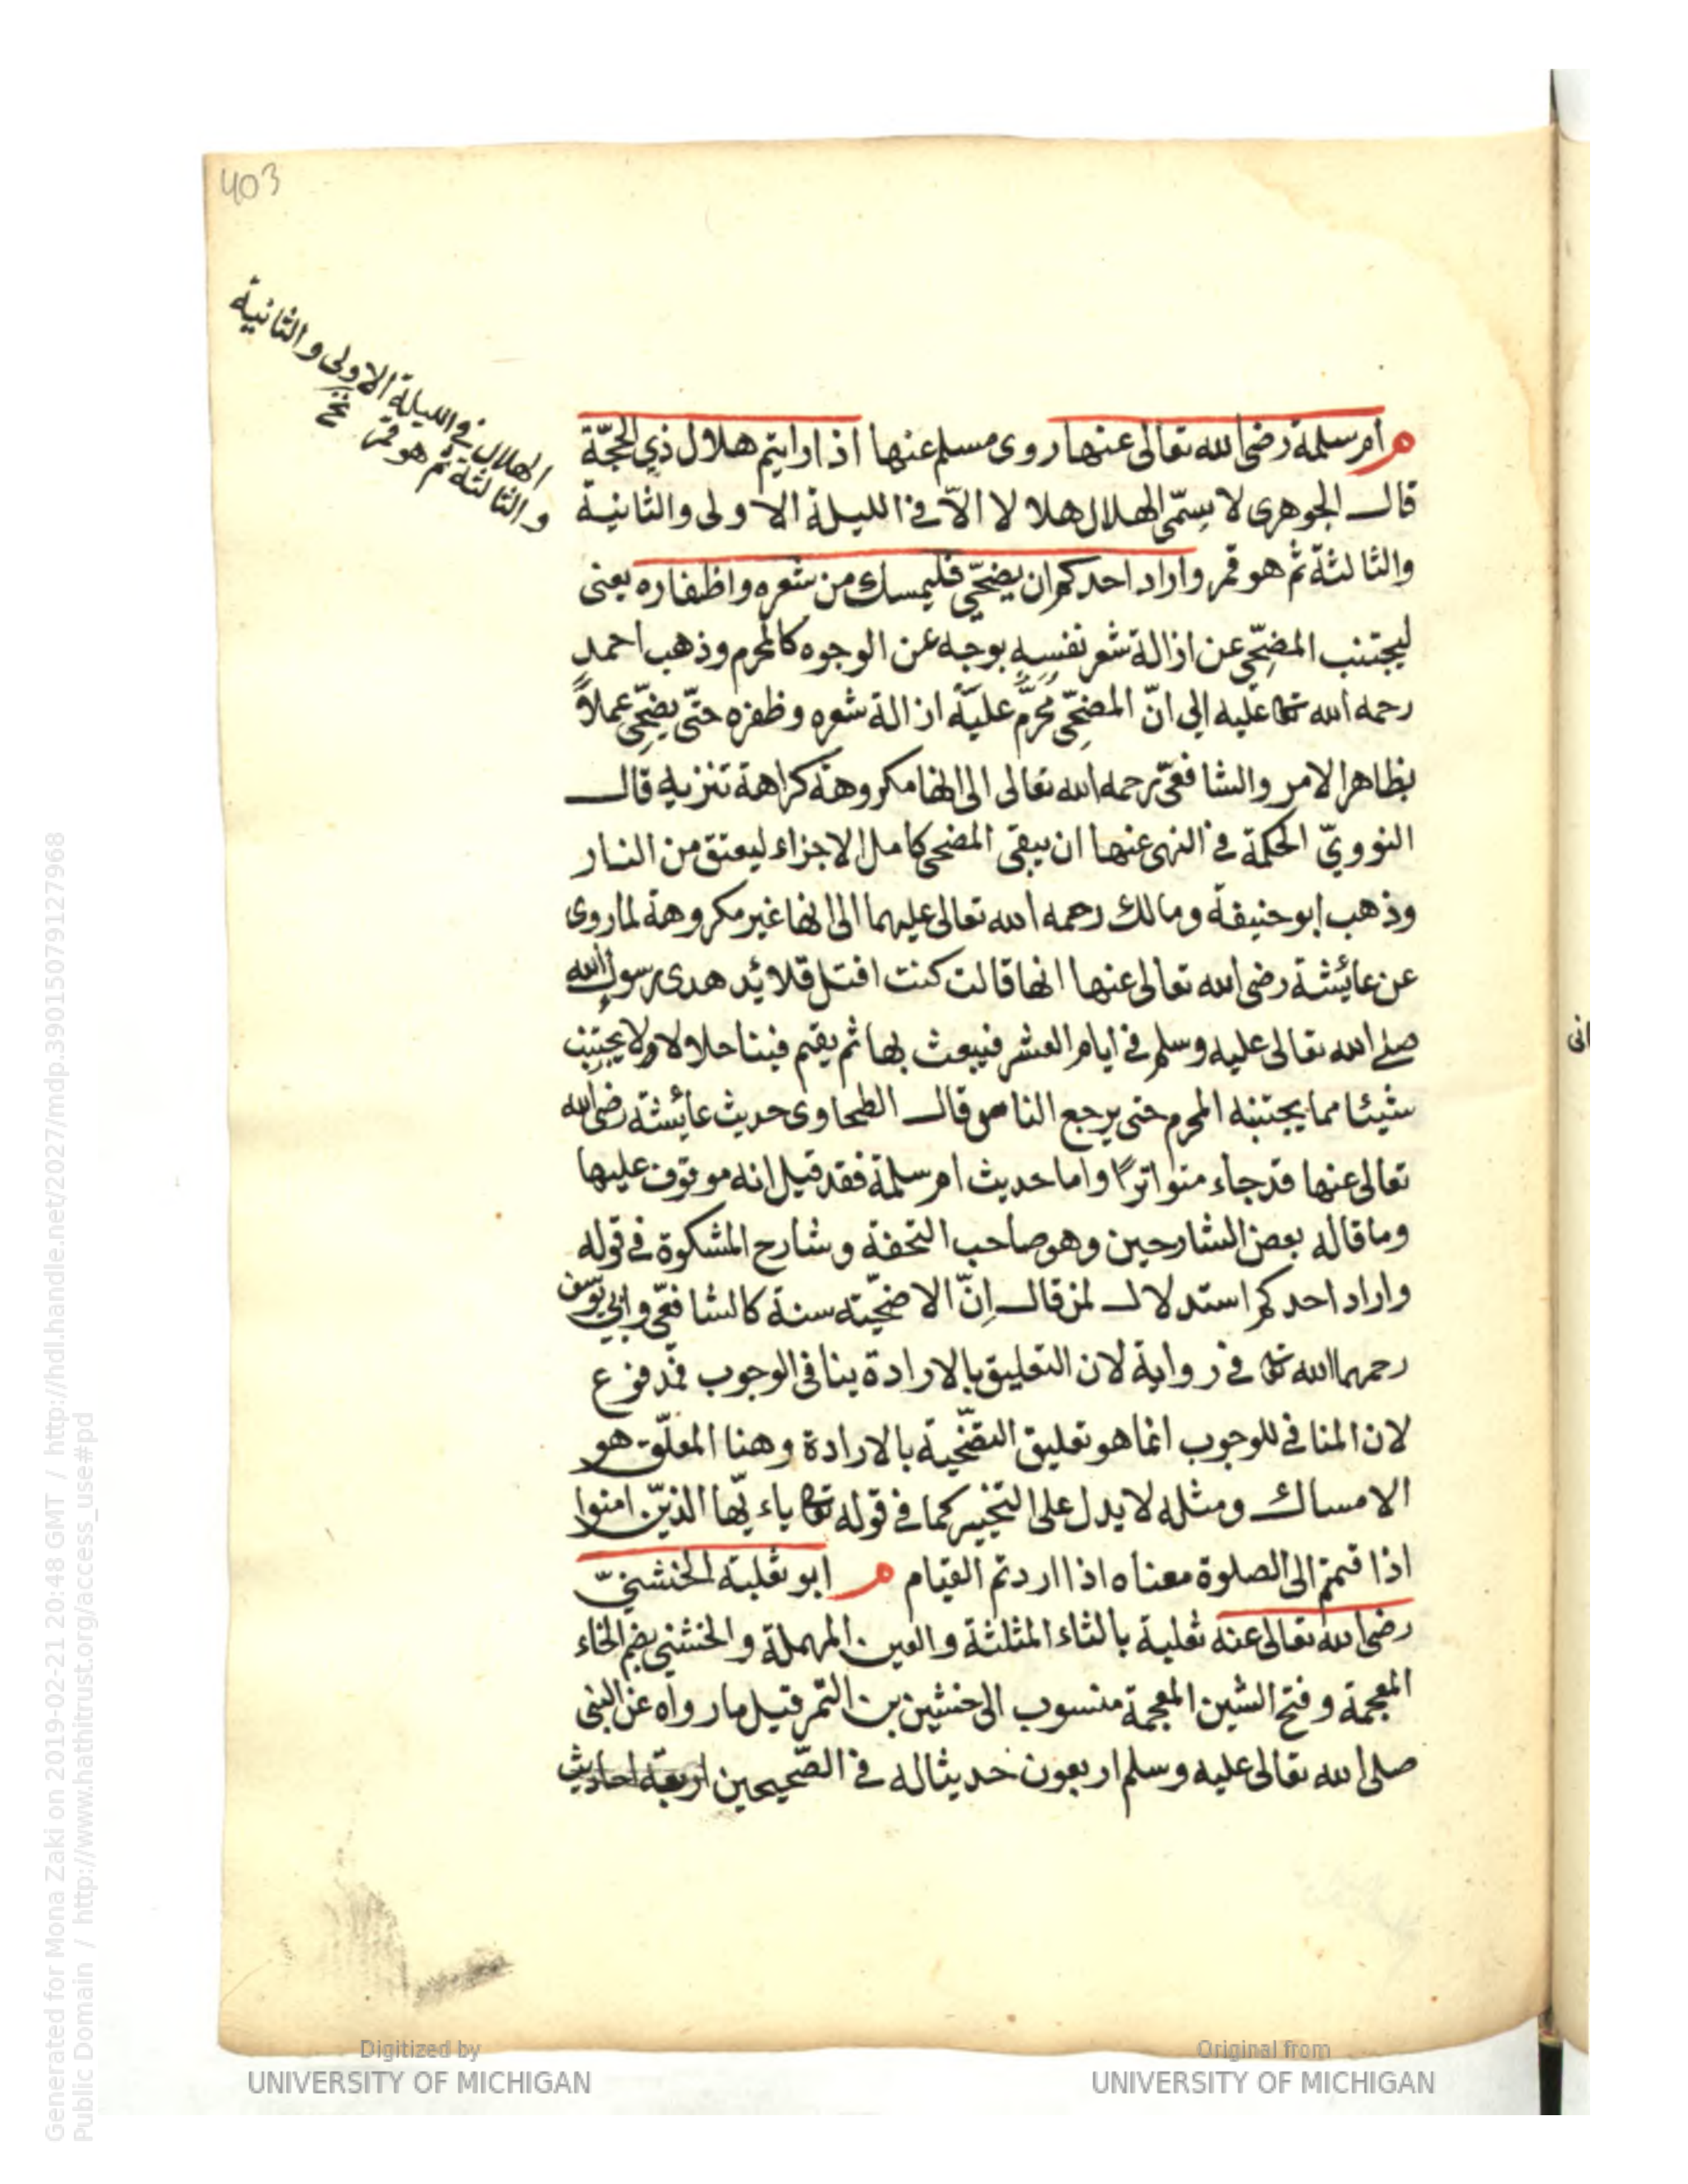 403
الهلال في الليلة الاولى والثانية
والثالثة ثم هو قمر
م ام سلمة رضى الله تعالى عنها روى مسلم عنها اذا رايتم هلال ذي الحجّة
قال الجوهرى لا يسمّى الهلال هلالا الّا في الليلة الاولى والثانية
والثالثة ثم هو قمر واراد احدكم ان يضحّي فليمسك من شعره واظفاره يعنى
ليجتنب المضحّي عن ازالة شعر نفسه بوجه عن الوجوه كالمحرم وذهب احمد
رحمه الله تعا عليه الى انّ المضحّي محرّم عليه ازالة شعره وظفره حتّى يضحّي عملاً
بظاهر الامر والشافعيّ رحمه الله تعالى الى انها مكروهة كراهة تنزيه قال
النوويّ الحكمة في النهى عنها ان يبقى المضحى كامل الاجزاء ليعتق من النار
وذهب ابو حنيفة ومالك رحمه الله تعالى عليهما الى انها غير مكروهة لما روى
عن عايئشة رضى الله تعالى عنها انها قالت كنت افتل قلائد هدى رسول الله
صلى الله تعالى عليه وسلم في ايام العشر فيبعث بها ثم يقيم فينا حلالا ولا يجتنب
شيئا مما يجتنبه المحرم حتى يرجع الناس قال الطحاوى حديث عايئشة رضى الله
تعالى عنها قد جاء متواترًا واما حديث ام سلمة فقد قيل انه موقوف عليها
وما قاله بعض الشارحين وهو صاحب التحفة وشارح المشكوة في قوله
واراد احدكم استدلال لمن قال إنّ الاضحّيته سنة كالشافعّي وابي يوسف
رحمهما الله تعا في رواية لان التعليق بالارادة ينافى الوجوب فمدفوع
لان المنافى للوجوب انما هو تعليق التضحّية بالارادة وهنا المعلّق هو
الامساك ومثله لا يدل على التخيير كما في قوله تعا ياءيّها الذين امنوا
اذا قمتم الى الصلوة معناه اذا اردتم القيام م ابو ثعلبة الخشنيّ
رضى الله تعالى عنه ثعلبة بالثاء المثلثة والعين المهملة والخشني بضم الخاء
المعجمة وفتح الشين المعجمة منسوب الى خشين بن التمر قيل ما رواه عن النبى
صلى الله تعالى عليه وسلم اربعون حديثا له في الصّحيحين اربعة احاديث
Generated for Mona Zaki on 2019-02-21 20:48 GMT / http://hdl.handle.net/2027/mdp.39015079127968
Public Domain / http://www.hathitrust.org/access_use#pd
Digitized by
UNIVERSITY OF MICHIGAN
Original from
UNIVERSITY OF MICHIGAN